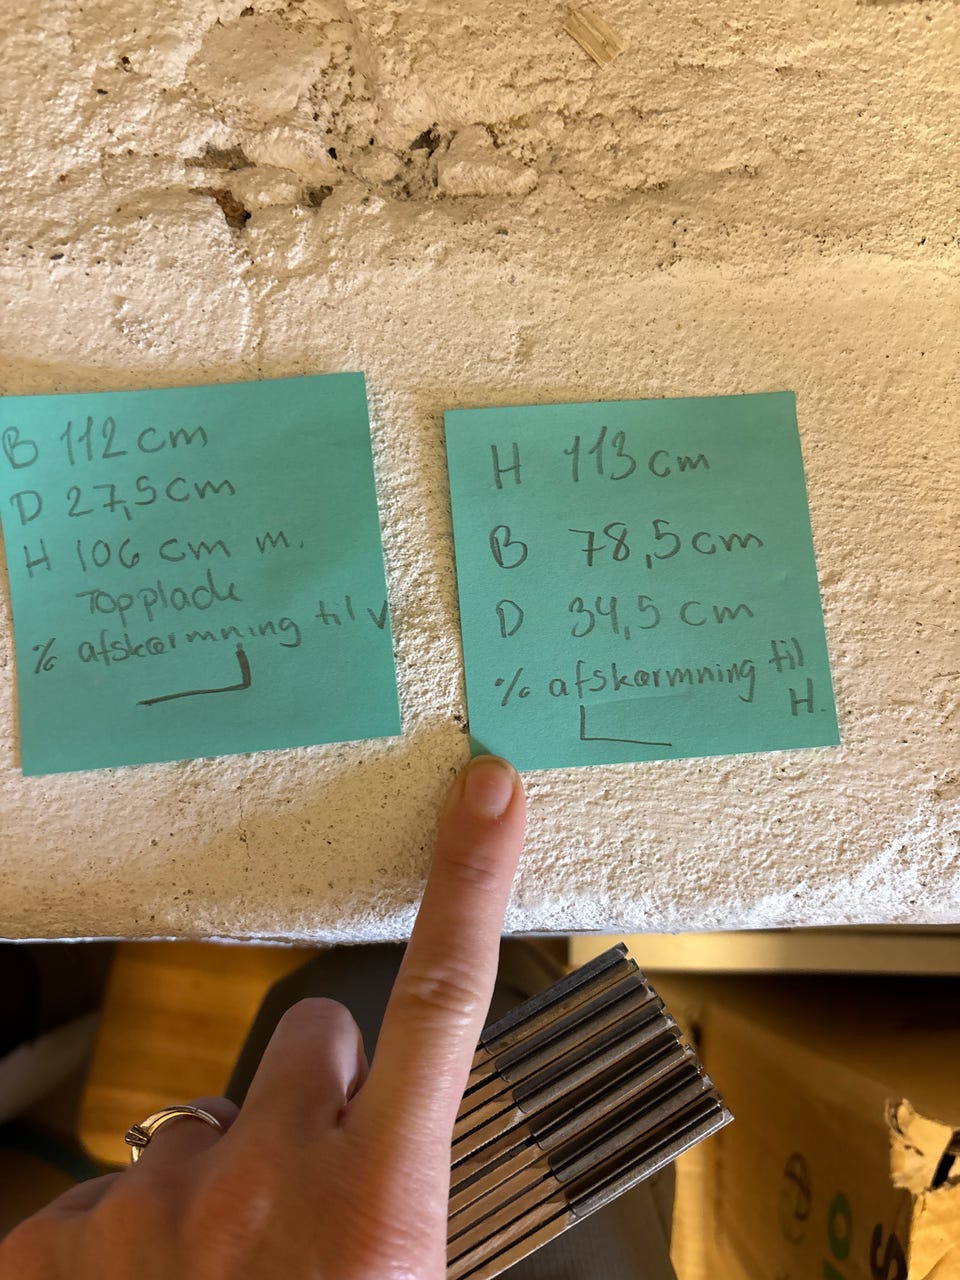 B 112 cm
D 27,5 cm
H 106 cm m.
Topplade
% afskærmning til V
H 113 cm
B 78,5 cm
D 34,5 cm
% afskærmning til
H.